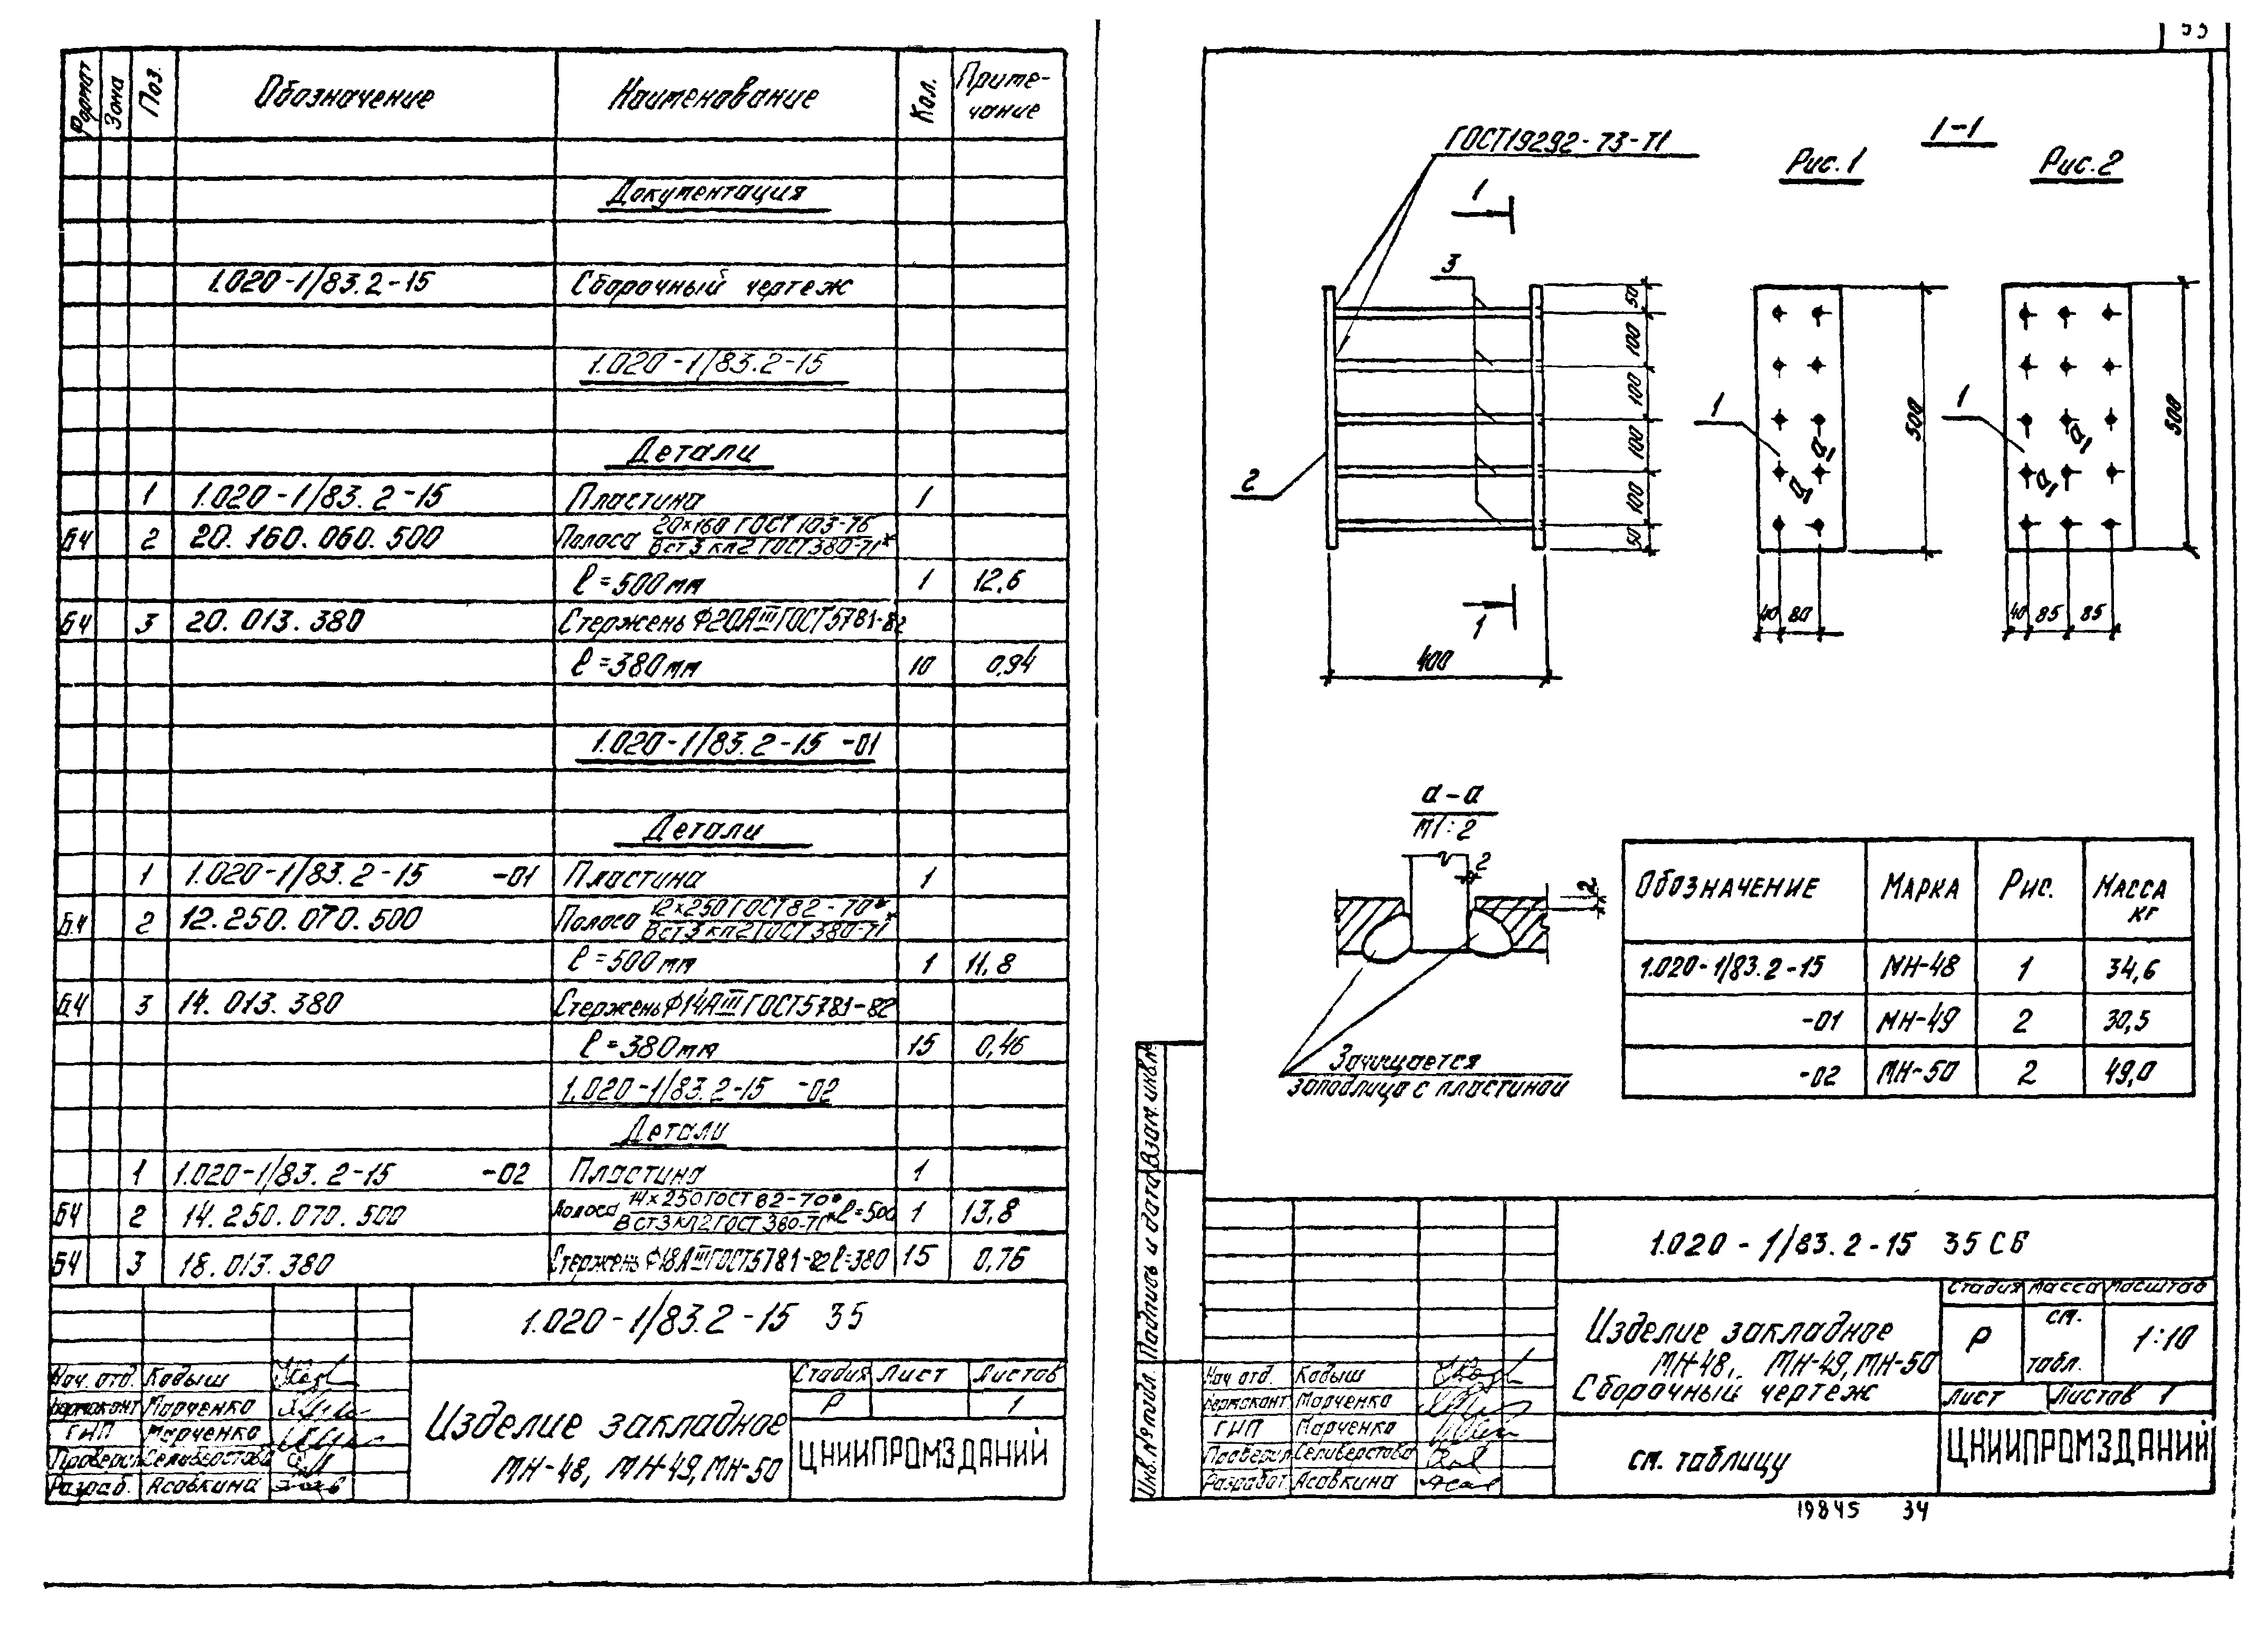 Формат Зона Поз. Обозначение Наименование Кол. Приме-
чание
Документация
1.020-1/83.2-15 Сборочный чертеж
1.020-1/83.2-15
Детали
1 1.020-1/83.2-15 Пластина 1
БЧ 2 20.160.060.500 Полоса 20×160 ГОСТ 103-76
ВСт3кп2 ГОСТ 380-71*
ℓ=500мм 1 12,6
БЧ 3 20.013.380 Стержень Ф20АIII ГОСТ 5781-82
ℓ=380мм 10 0,94
1.020-1/83.2-15 -01
Детали
1 1.020-1/83.2-15 -01 Пластина 1
БЧ 2 12.250.070.500 Полоса 12×250 ГОСТ 82-70*
ВСт3кп2 ГОСТ 380-71*
ℓ=500мм 1 11,8
БЧ 3 14.013.380 Стержень Ф14АIII ГОСТ 5781-82
ℓ=380мм 15 0,46
1.020-1/83.2-15 -02
Детали
1 1.020-1/83.2-15 -02 Пластина 1
БЧ 2 14.250.070.500 Полоса 14×250 ГОСТ 82-70* ℓ=500 1 13,8
ВСт3кп2 ГОСТ 380-71*
БЧ 3 18.013.380 Стержень Ф18АIII ГОСТ 5781-82 ℓ=380 15 0,76
1.020-1/83.2-15 35
Нач. отд. Кодыш
Нормоконт Марченко
ГИП Марченко
Проверил Селиверстова
Разраб. Асавкина
Изделие закладное
МН-48, МН-49, МН-50
Стадия Лист Листов
Р 1
ЦНИИПРОМЗДАНИЙ
ГОСТ19292-73-Т1
1-1
Рис.1 Рис.2
1
3
2
1
400
50
100
100
100
100
50
1
а₁
а₁
500
40 80
1
а₁
а₁
500
40 85 85
а-а
М1:2
2
2
Зачищается
заподлицо с пластиной
ОБОЗНАЧЕНИЕ МАРКА РИС. МАССА
КГ
1.020-1/83.2-15 МН-48 1 34,6
-01 МН-49 2 30,5
-02 МН-50 2 49,0
Взам. инв.№
Подпись и дата
Инв.№ подл.
1.020-1/83.2-15 35СБ
Нач. отд. Кодыш
Нормоконт Марченко
ГИП Марченко
Проверил Селиверстова
Разработ. Асавкина
Изделие закладное
МН-48, МН-49, МН-50
Сборочный чертеж
см. таблицу
Стадия Масса Масштаб
Р см.
табл. 1:10
Лист Листов 1
ЦНИИПРОМЗДАНИЙ
19845 34